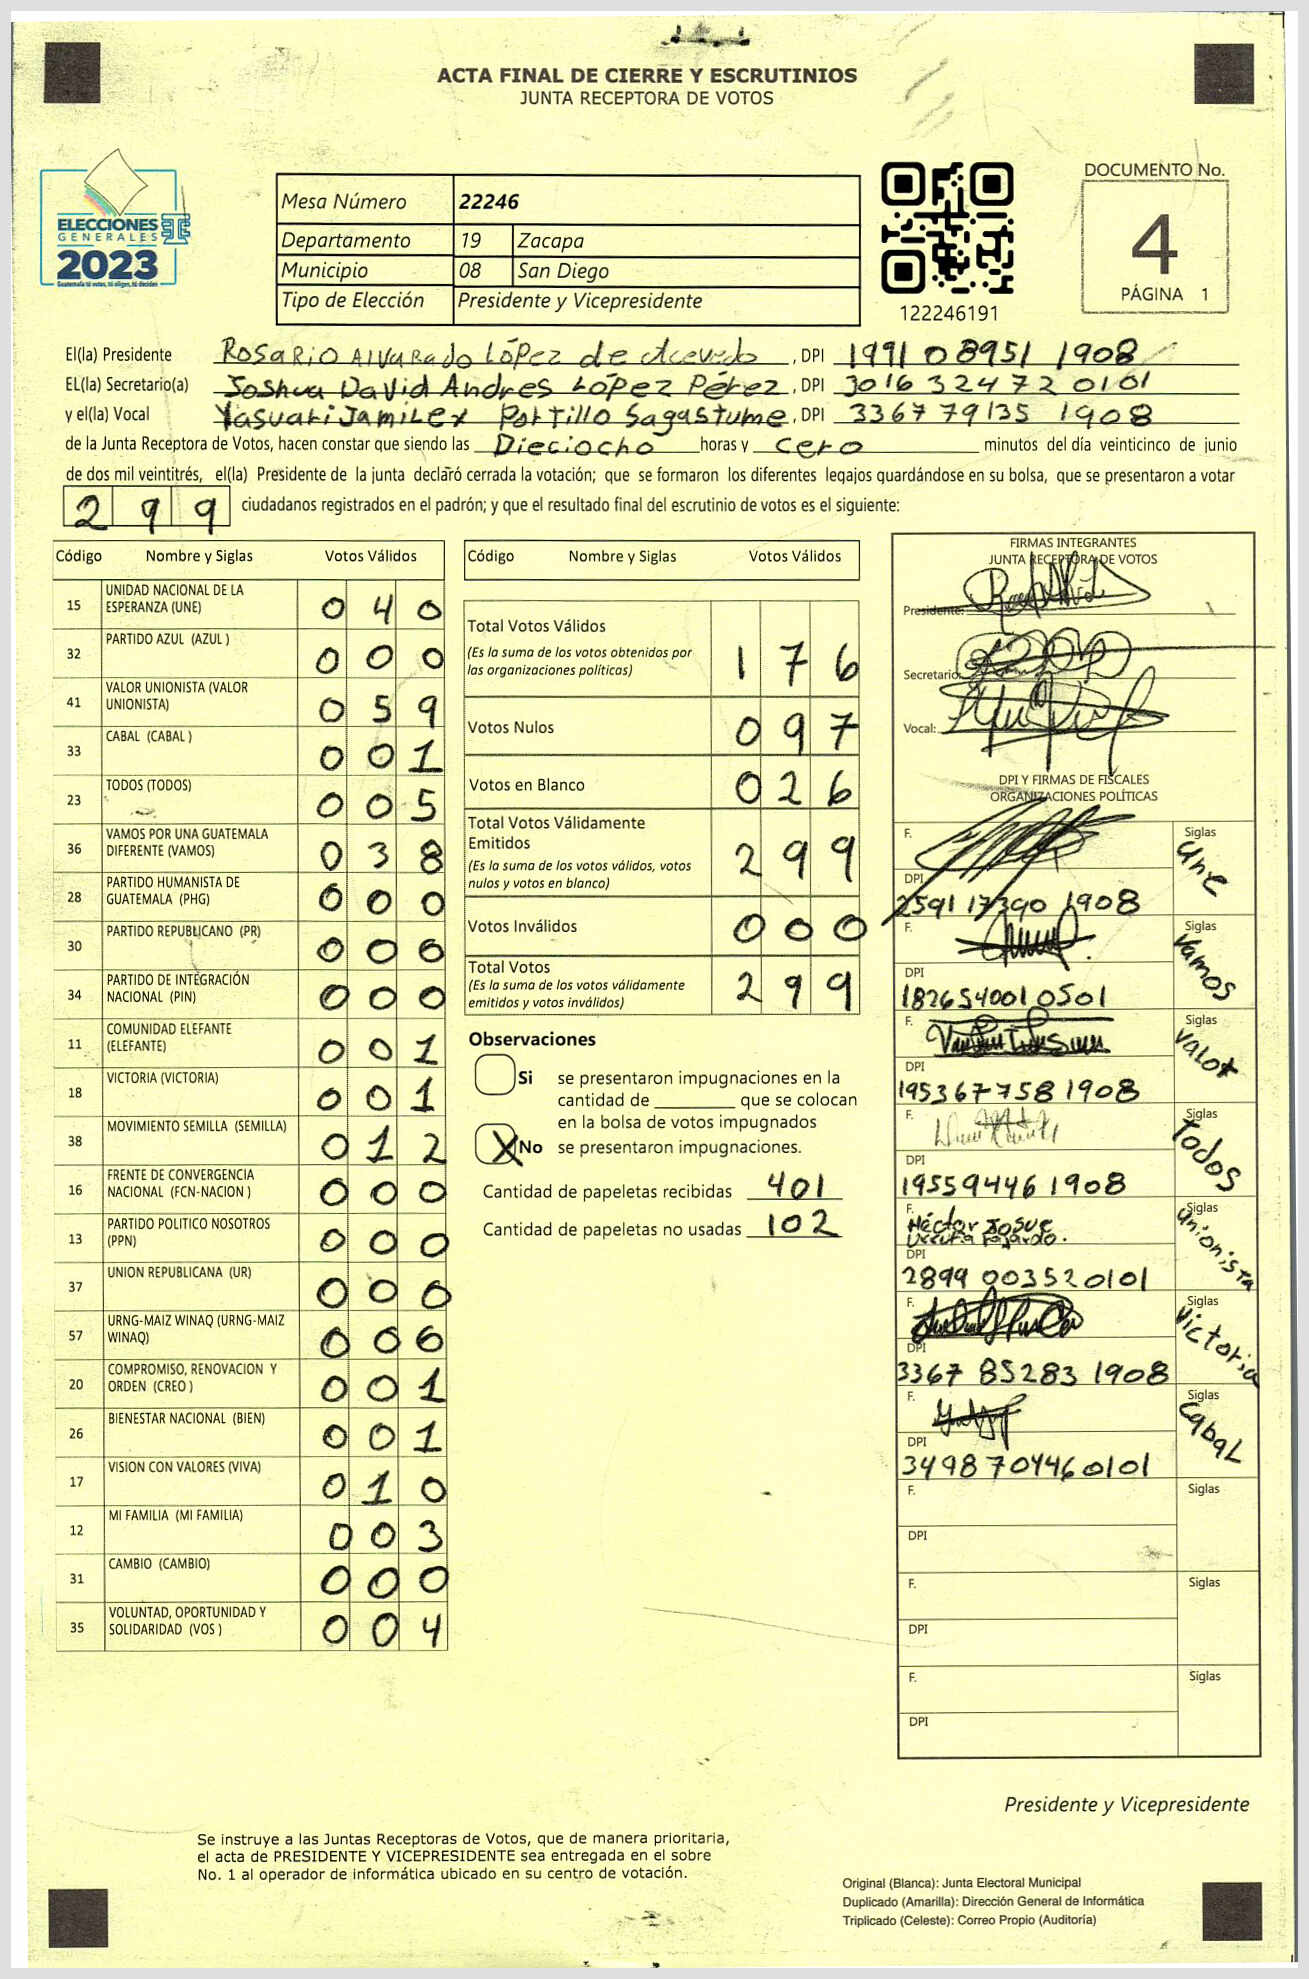 ACTA FINAL DE CIERRE Y ESCRUTINIOS
JUNTA RECEPTORA DE VOTOS
ELECCIONES
GENERALES
2023
Guatemala tú votas, tú eliges, tú decides
Mesa Número 22246
Departamento 19 Zacapa
Municipio 08 San Diego
Tipo de Elección Presidente y Vicepresidente
122246191
DOCUMENTO No.
4
PÁGINA 1
El(la) Presidente Rosario Alvarado López de Acevedo, DPI 1991 08951 1908
EL(la) Secretario(a) Joshua David Andres López Pérez, DPI 3016 32472 0101
y el(la) Vocal Yasuari Jamilex Portillo Sagastume, DPI 3367 79135 1908
de la Junta Receptora de Votos, hacen constar que siendo las Dieciocho horas y cero minutos del día veinticinco de junio
de dos mil veintitrés, el(la) Presidente de la junta declaró cerrada la votación; que se formaron los diferentes legajos guardándose en su bolsa, que se presentaron a votar
299 ciudadanos registrados en el padrón; y que el resultado final del escrutinio de votos es el siguiente:
Código Nombre y Siglas Votos Válidos
15 UNIDAD NACIONAL DE LA ESPERANZA (UNE) 040
32 PARTIDO AZUL (AZUL ) 000
41 VALOR UNIONISTA (VALOR UNIONISTA) 059
33 CABAL (CABAL ) 001
23 TODOS (TODOS) 005
36 VAMOS POR UNA GUATEMALA DIFERENTE (VAMOS) 038
28 PARTIDO HUMANISTA DE GUATEMALA (PHG) 000
30 PARTIDO REPUBLICANO (PR) 000
34 PARTIDO DE INTEGRACIÓN NACIONAL (PIN) 000
11 COMUNIDAD ELEFANTE (ELEFANTE) 001
18 VICTORIA (VICTORIA) 001
38 MOVIMIENTO SEMILLA (SEMILLA) 012
16 FRENTE DE CONVERGENCIA NACIONAL (FCN-NACION ) 000
13 PARTIDO POLITICO NOSOTROS (PPN) 000
37 UNION REPUBLICANA (UR) 000
57 URNG-MAIZ WINAQ (URNG-MAIZ WINAQ) 00
20 COMPROMISO, RENOVACION Y ORDEN (CREO ) 001
26 BIENESTAR NACIONAL (BIEN) 001
17 VISION CON VALORES (VIVA) 010
12 MI FAMILIA (MI FAMILIA) 003
31 CAMBIO (CAMBIO) 000
35 VOLUNTAD, OPORTUNIDAD Y SOLIDARIDAD (VOS ) 004
Código Nombre y Siglas Votos Válidos
Total Votos Válidos 176
(Es la suma de los votos obtenidos por
las organizaciones políticas)
Votos Nulos 097
Votos en Blanco 026
Total Votos Válidamente
Emitidos 299
(Es la suma de los votos válidos, votos
nulos y votos en blanco)
Votos Inválidos 000
Total Votos 299
(Es la suma de los votos válidamente
emitidos y votos inválidos)
Observaciones
Si se presentaron impugnaciones en la
cantidad de ________ que se colocan
en la bolsa de votos impugnados
X No se presentaron impugnaciones.
Cantidad de papeletas recibidas 401
Cantidad de papeletas no usadas 102
FIRMAS INTEGRANTES
JUNTA RECEPTORA DE VOTOS
Presidente:
Secretario:
Vocal:
DPI Y FIRMAS DE FISCALES
ORGANIZACIONES POLÍTICAS
F. Siglas Une
DPI 2591 17390 1908
F. Siglas Vamos
DPI 182654001 0501
F. Siglas Valor
DPI 195367758 1908
F. Siglas Todos
DPI 195594461908
F. Héctor Josue Siglas Unionista
DPI 2899 003520101
F. Siglas Victoria
DPI 3367 85283 1908
F. Siglas CabaL
DPI 3498704460101
F. Siglas
DPI
F. Siglas
DPI
F. Siglas
DPI
Presidente y Vicepresidente
Se instruye a las Juntas Receptoras de Votos, que de manera prioritaria,
el acta de PRESIDENTE Y VICEPRESIDENTE sea entregada en el sobre
No. 1 al operador de informática ubicado en su centro de votación.
Original (Blanca): Junta Electoral Municipal
Duplicado (Amarilla): Dirección General de Informática
Triplicado (Celeste): Correo Propio (Auditoría)